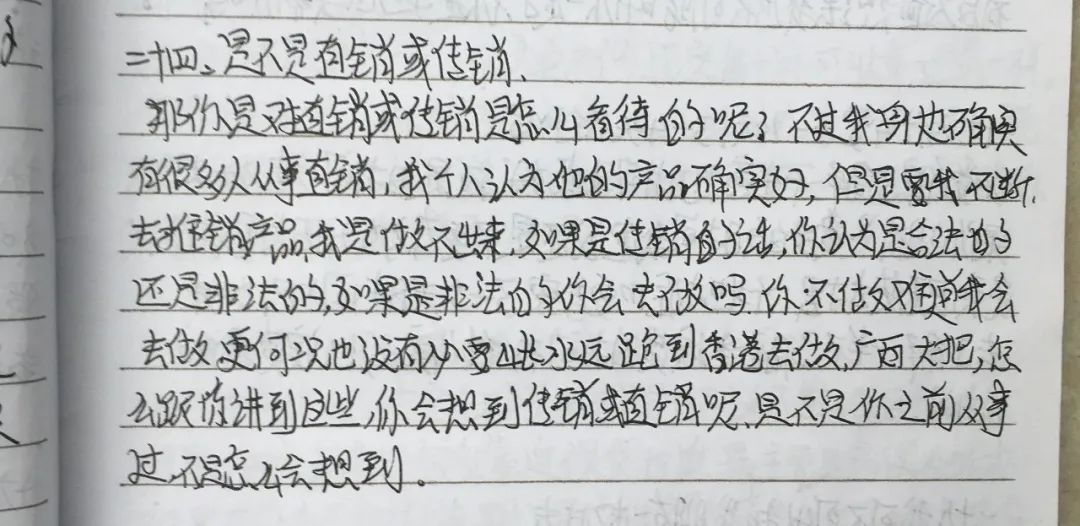 二十四、是不是直销或传销、
那你是对直销或传销是怎么看待的呢？不过我身边确实
有很多人从事直销，我个人认为他的产品确实好，但是要我不断
去推销产品，我是做不出来，如果是传销的话，你认为是合法的
还是非法的，如果是非法的你会去做吗 你不做难道我会
去做 更何况也没有必要山长水远跑到香港去做，广西大把，怎
么跟你讲到这些，你会想到传销或直销呢，是不是你之前从事
过，不是怎么会想到。